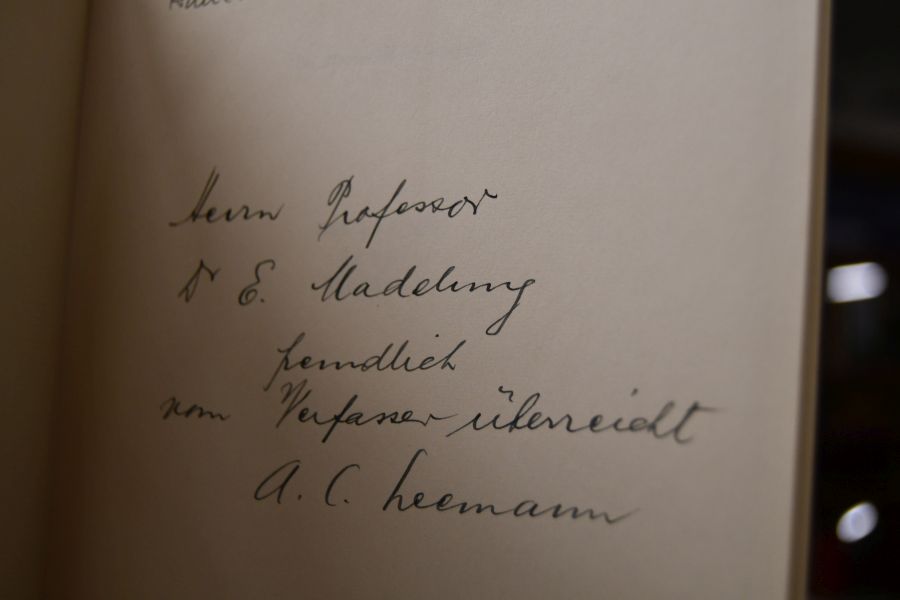 Herrn Professor
Dr E. Madelung
freundlich
vom Verfasser überreicht
A. C. Leemann